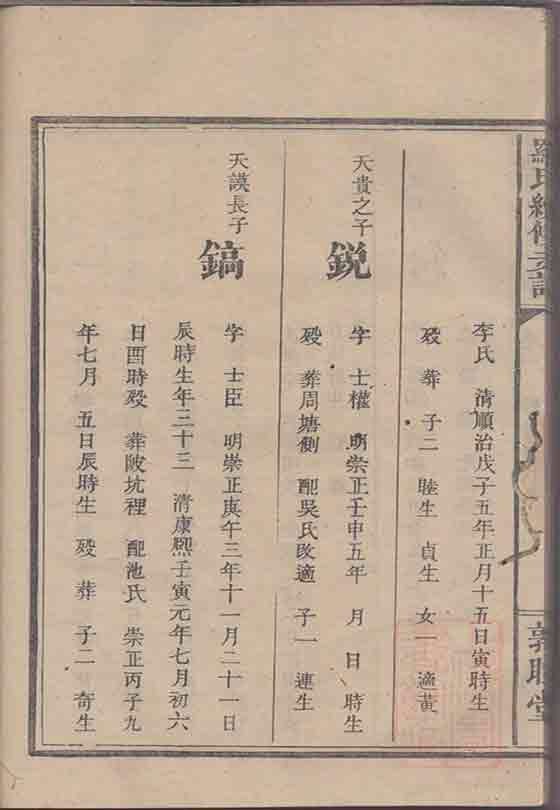 羅氏續修支譜
敦睦堂
李氏 清順治戊子五年正月十五日寅時生
歿 葬 子二 睦生 貞生 女一 適黃
天貴之子
銳
字 士權 明崇正壬申五年 月 日 時生
歿 葬周塘側 配吳氏改適 子一 連生
天謨長子
鎬
字 士臣 明崇正庚午三年十一月二十一日
辰時生年三十三 清康熙壬寅元年七月初六
日酉時歿 葬陂坑裡 配池氏 崇正丙子九
年七月 五日辰時生 歿 葬 子二 奇生